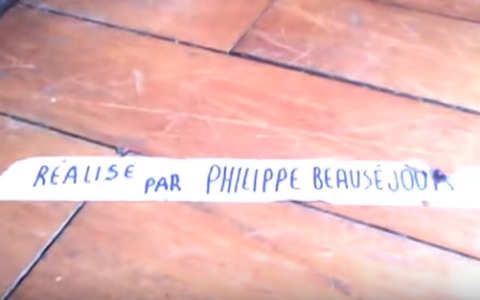 RÉALISÉ PAR PHILIPPE BEAUSÉJOUR